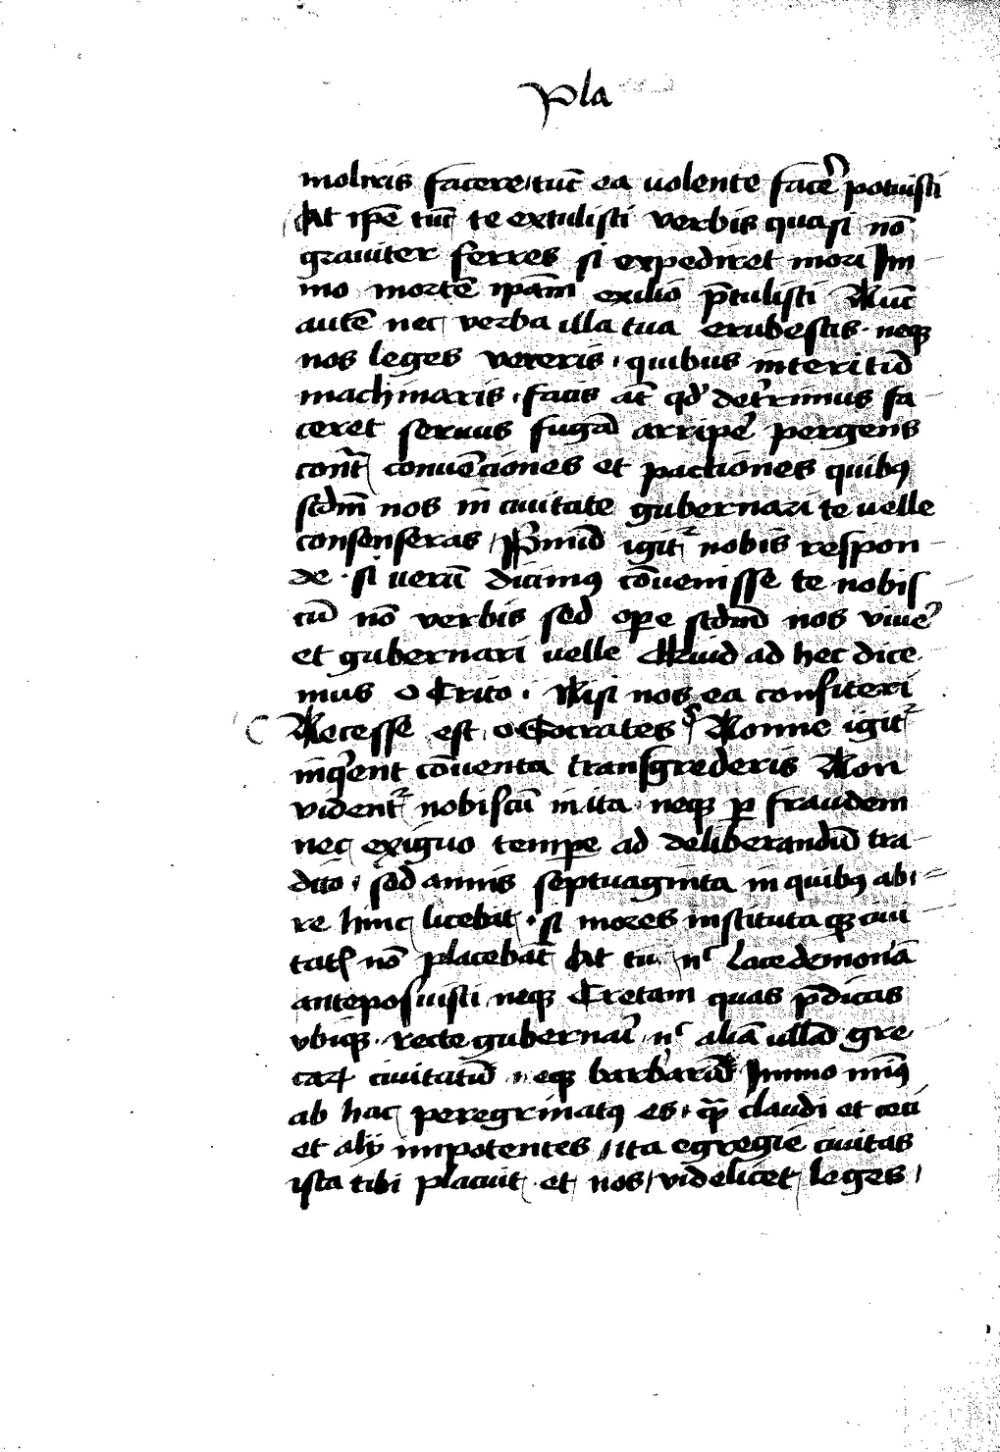 Pla
moliris facere, tūc ea volente facer̄ potuisti
At ip̄e tūc te extulisti verbis quasi nō
graviter ferres si expediret mori Im
mo mortē ip̄am exilio p̄tulisti Nūc
autē nec verba illa tua erubescis · neqꝫ
nos leges vereris · quibus interitū
machinaris · facis at̄ qd̓ det̓rimus fa
ceret servus fugā arriper̄ pergens
contr̄ convēciones et pactiones quibꝯ
scdm̄ nos in civitate gubernari te velle
consenseras, P̓mū igit᷑ nobis respon
de · si verū dicimꝯ cōvenisse te nobis
cū nō verbis sed oꝑe scdm̄ nos viver̄
et gubernari velle Quid ad hec dice
mus o Crito · Nisi nos ea confiteri
Necesse est o Socrates Nonne igit᷑
inq̓ent cōventa transgrederis Non
vident᷑ nobiscū inita neqꝫ ꝑ fraudem
nec exiguo temꝑe ad deliberandū tra
dito · sed annis septuaginta in quibꝯ abi
re hinc licebat · si mores instituta qꝫ civi
tatꝭ nō placebāt At tu nc̓ Lacedemoniā
anteposuisti neqꝫ Cretam quas p̄dicas
vbiqꝫ recte gubernar̄ nc̓ aliā ullā gre
caꝝ civitatū neqꝫ barbarū Immo minꝯ
ab hac peregrinatꝯ es · qm̄ claudi et ceci
et alij impotentes, ita egregie civitas
ista tibi placuit et nos, videlicet leges,